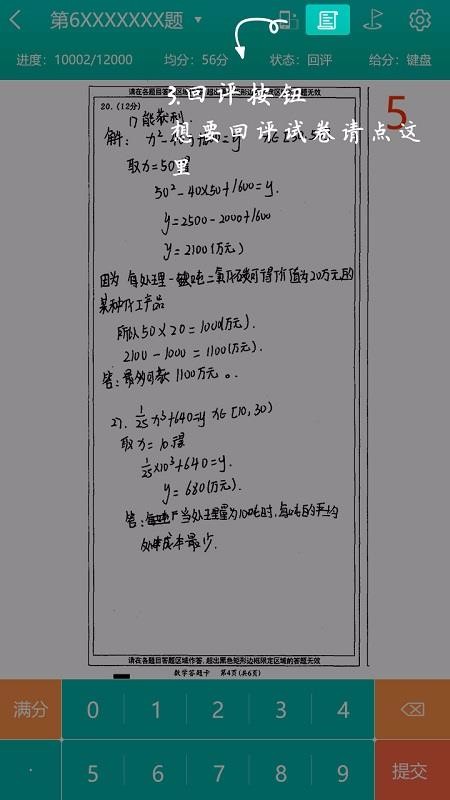 第6XXXXXXX题
进度：10002/12000 均分：56分 状态：回评 给分：键盘
请在各题目答题区域作答，超出黑色矩形边框限定区域的答题无效
3.回评按钮
想要回评试卷请点这
里
5
20.(12分)
1) 能获利.
解:
取x=50得
50²-40×50+1600=y.
y=2500-2000+1600
y=2100(万元)
因为 每处理一吨二氧化碳可得价值为20万元的
某种化工产品
所以50×20=1000(万元).
2100-1000=1100(万元).
答:最多可获1100万元。
2). 1/25 x³+640=y x∈[10,30)
取x=10.得
1/25×10³+640=y.
y=680(万元).
答: 当处理量为10吨时,每吨的平均
处理成本最少.
请在各题目答题区域作答，超出黑色矩形边框限定区域的答题无效
数学答题卡 第4页(共6页)
满分 0 1 2 3 4
· 5 6 7 8 9 提交